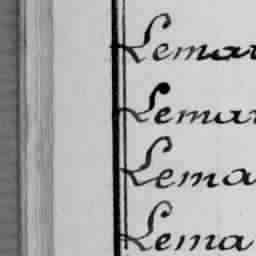 Lemar
Lemar
Lema
Lema